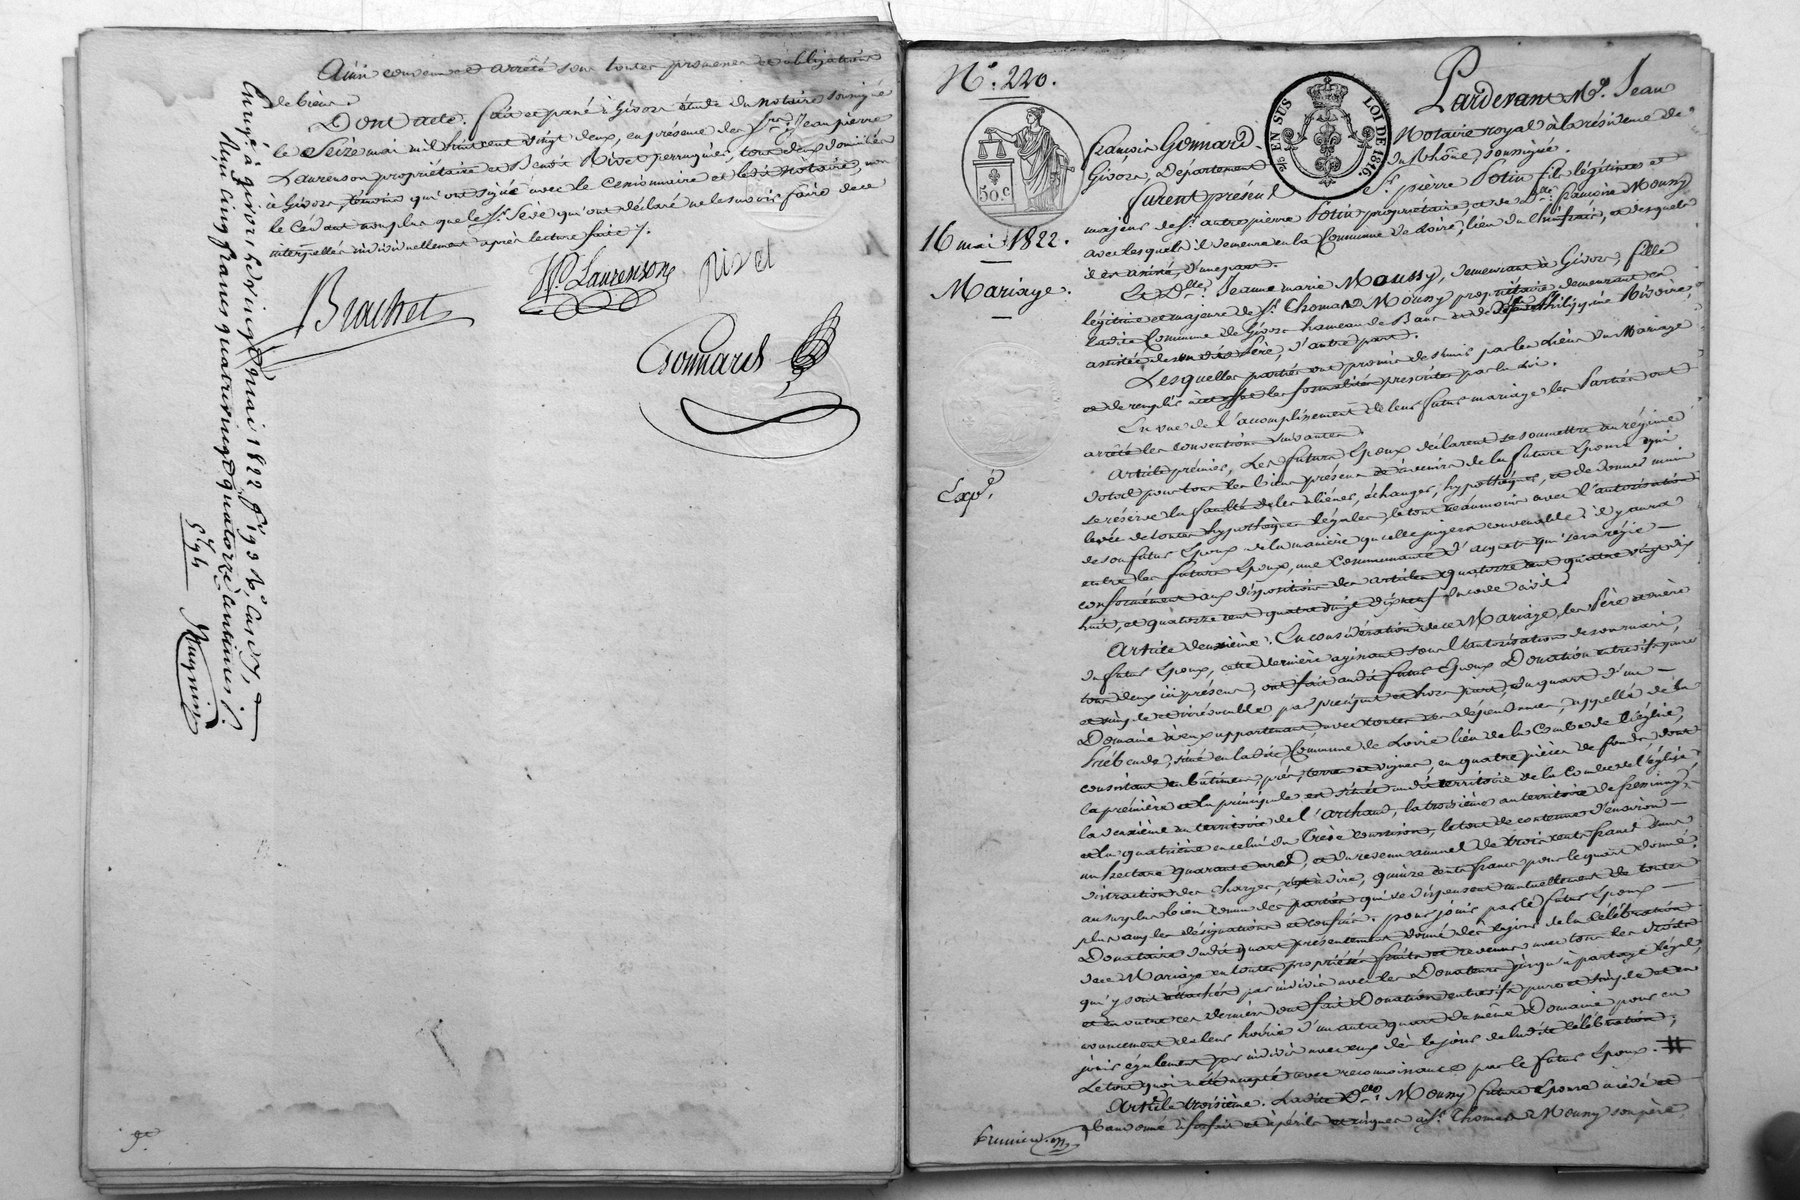 Ainsi convenu et arrêté sous toutes promesses et obligations
de biens.
Dont acte. fait et passé à Givors étude du notaire soussigné
le Seize mai mil huit cent vingt deux, en présence des Srs Jean pierre
Laurenson propriétaire et Benoit Rivet perruquier, tous deux domiciliés
à Givors, témoins qui ont signé avec le Cessionnaire et le notaire, non
le Cédant non plus que le Sr Sève qui ont déclaré ne le savoir faire de ce
interpellés individuellement après lecture faite.
Brachet
JP. Laurenson
Rivet
Gonnard
Enregé à givors le vingt mai 1822 fo 190 Vo
Reçu cinq francs quatrevingt quatorze centimes
5f 94c
No. 220.
16 mai 1822.
Mariage.
Expé.
50 c
2/10 EN SUS LOI DE 1816
Pardevant Me. Jean
françois Gonnard Notaire royal à la résidence de
Givors, Département du Rhône, soussigné.
furent présents Sr. pierre Potin fils légitime et
majeur de Sr. autre pierre Potin propriétaire et de dlle. françoise Moussy
avec lesquels il demeure en la Commune de Loire, lieu du et desquels
il est assisté, d'une part.
Et Dlle. Jeanne marie Moussy, demeurant à Givors, fille
légitime et majeure de Sr. Thomas Moussy propriétaire demeurant en
ladite Commune de Givors hameau de Bans et de Philippine Rivoire,
assistée de son dit Père, d'autre part.
Lesquelles parties ont promis de s'unir par les Liens du Mariage
et de remplir à cet effet les formalités prescrites par la loi.
En vue de l'accomplissement de leur futur mariage les Parties ont
arrêté les conventions suivantes.
Article premier, Les futurs Epoux déclarent se soumettre au régime
dotal pour tous les biens présens et à venir de la future Epouse qui
se réserve la faculté de les aliéner, échanger, hypothéquer, et de donner main
levée de toutes hypothèques légales, le tout néanmoins avec l'autorisation
de son futur Epoux de la manière qu'elle jugera convenable; il y aura
entre les futurs Epoux, une Communauté d'acquets qui sera régie
conformément aux dispositions des articles quatorze cent quatre vingt dix
huit, et quatorze cent quatre vingt dix neuf du code civil.
Article deuxième. En considération de ce Mariage, les Père et mère
du futur Epoux, cette dernière agissant sous l'autorisation de son mari,
tous deux ici présens, ont fait audit futur Epoux Donation entrevifs pure
et simple et irrévocable par préciput et hors part, du quart d'un
Domaine à eux appartenant avec toutes ses dépendances, appellé de la
Prébende, situé en ladite Commune de Loire lieu de la Combe de l'église,
consistant en bâtimens, prés, terres et vignes, en quatre pièces de fonds, dont
la première et la principale est située audit territoire de la Combe de l'église,
la deuxième au territoire de l'arthaud, la troisième au territoire de
et la quatrième en celui du le tout de contenue d'environ
un hectare quarante ares, et du revenu annuel de trois cents francs sans
distraction des charges, c'est à dire, quinze cents francs pour le quart donné;
au surplus bien connu des parties qui se dispensent mutuellement de toutes
plus amples désignations et confins. pour jouir par le futur Epoux
Donataire dudit quart présentement donné dès le jour de la célébration
de ce Mariage en toutes propriétés fruits et revenus avec tous les droits
qui y sont attachés par indivis avec les Donateurs jusqu'à partage légal,
et en outre ces derniers ont fait Donation entrevifs pure et simple et en
avancement de leur hoirie d'un autre quart du même Domaine pour en
jouir également par indivis avec eux dès le jour de ladite célébration;
Le tout quoi a été accepté avec reconnoissance par le futur Epoux. #
Article troisième. Ladite Dlle. Moussy future Epouse a cédé et
abandonné à forfait et à périls et risques à Sr. Thomas Moussy son père